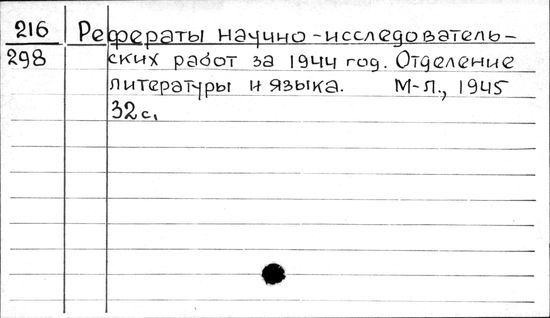 216 Рефераты научно-исследователь-
298 ских работ за 1944 год. Отделение
литературы и языка. М-Л., 1945
32 с.